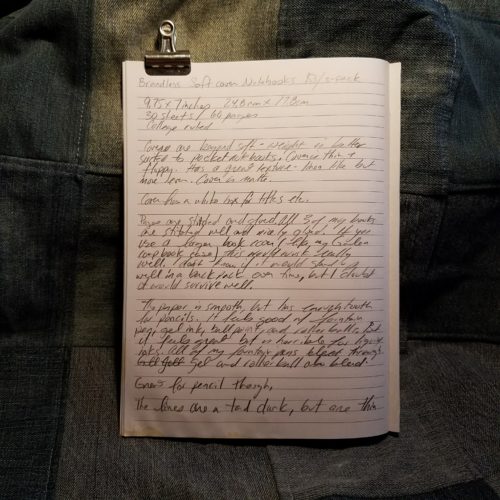 Brandless Soft cover Notebooks $3/3-pack
9.75 x 7 inches 24.8cm x 17.8cm
30 sheets / 60 pages
College ruled
Covers are beyond soft - weight is better
suited to pocket notebooks. Cover is thin &
floppy. Has a great texture - linen like but
more even. Cover is matte.
Cover has a white box for titles etc.
Pages are stitched and glued. All 3 of my books
are stitched well and nicely glued. If you
use a larger book cover (like my
comp book cover) this would work really
well. I don't know if it would stand up
well in a back pack over time, but I doubt
it would survive well.
The paper is smooth but has enough tooth
for pencils. It feels good w/ fountain
pen, gel ink, ball point, and roller balls. But
it feels great but is horrible for liquid
inks. All of my fountain pens bleed through
gel and roller ball also bleed.
Great for pencil though.
The lines are a tad dark, but are thin